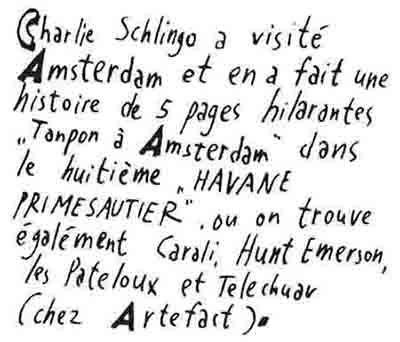 Charlie Schlingo a visité
Amsterdam et en a fait une
histoire de 5 pages hilarantes
„Tanpon à Amsterdam" dans
le huitième „HAVANE
PRIMESAUTIER", ou on trouve
égalément Carali, Hunt Emerson,
les Pateloux et Telechuav
(chez Artefact).